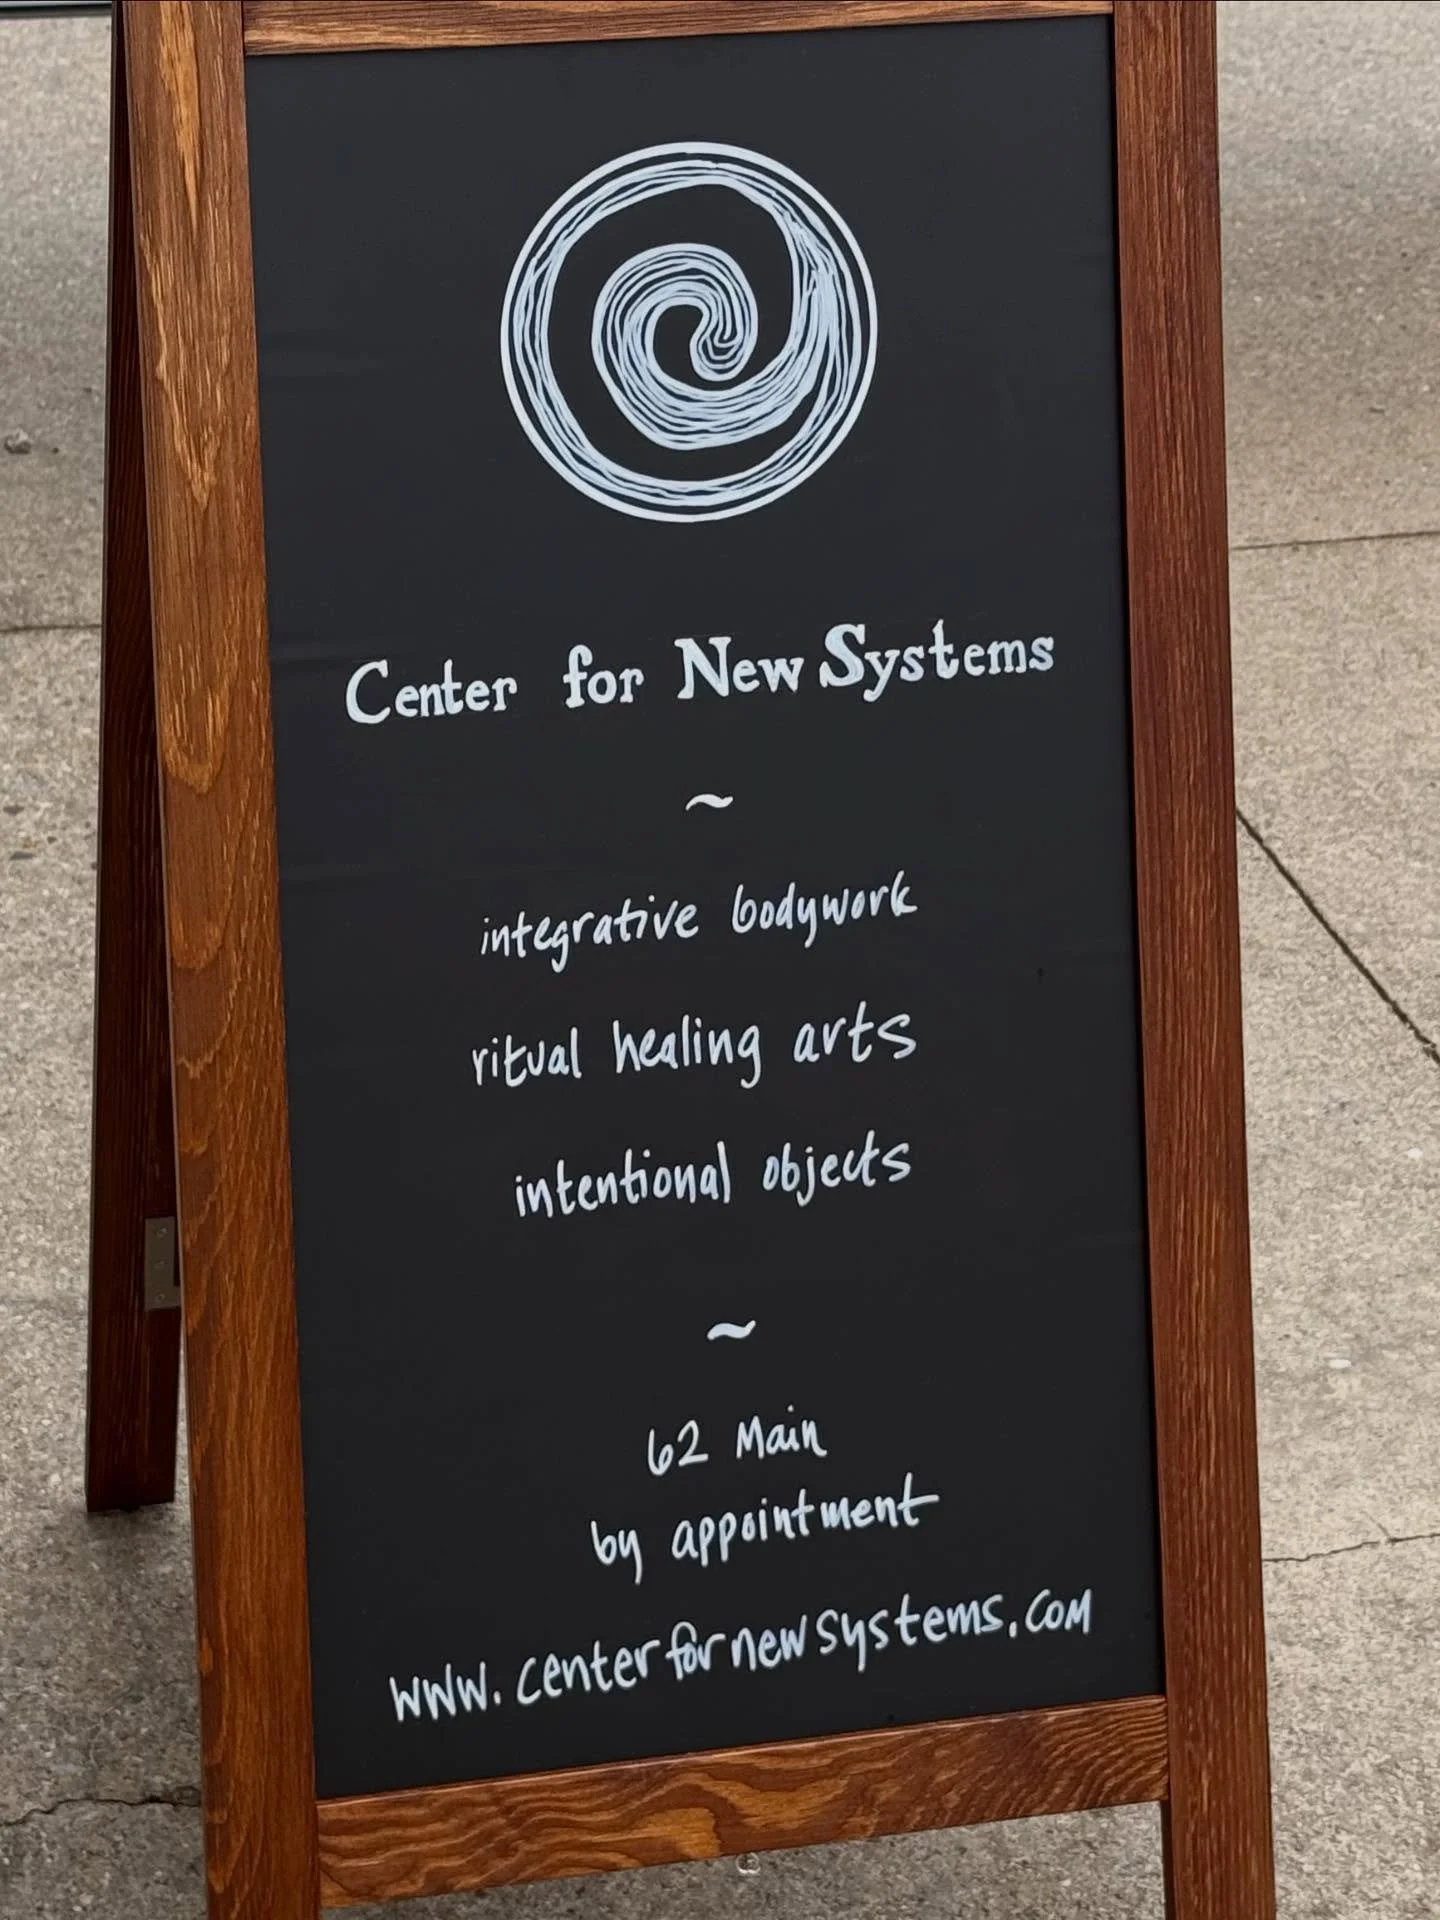 Center for New Systems
~
integrative bodywork
ritual healing arts
intentional objects
~
62 Main
by appointment
www.centerfornewsystems.com